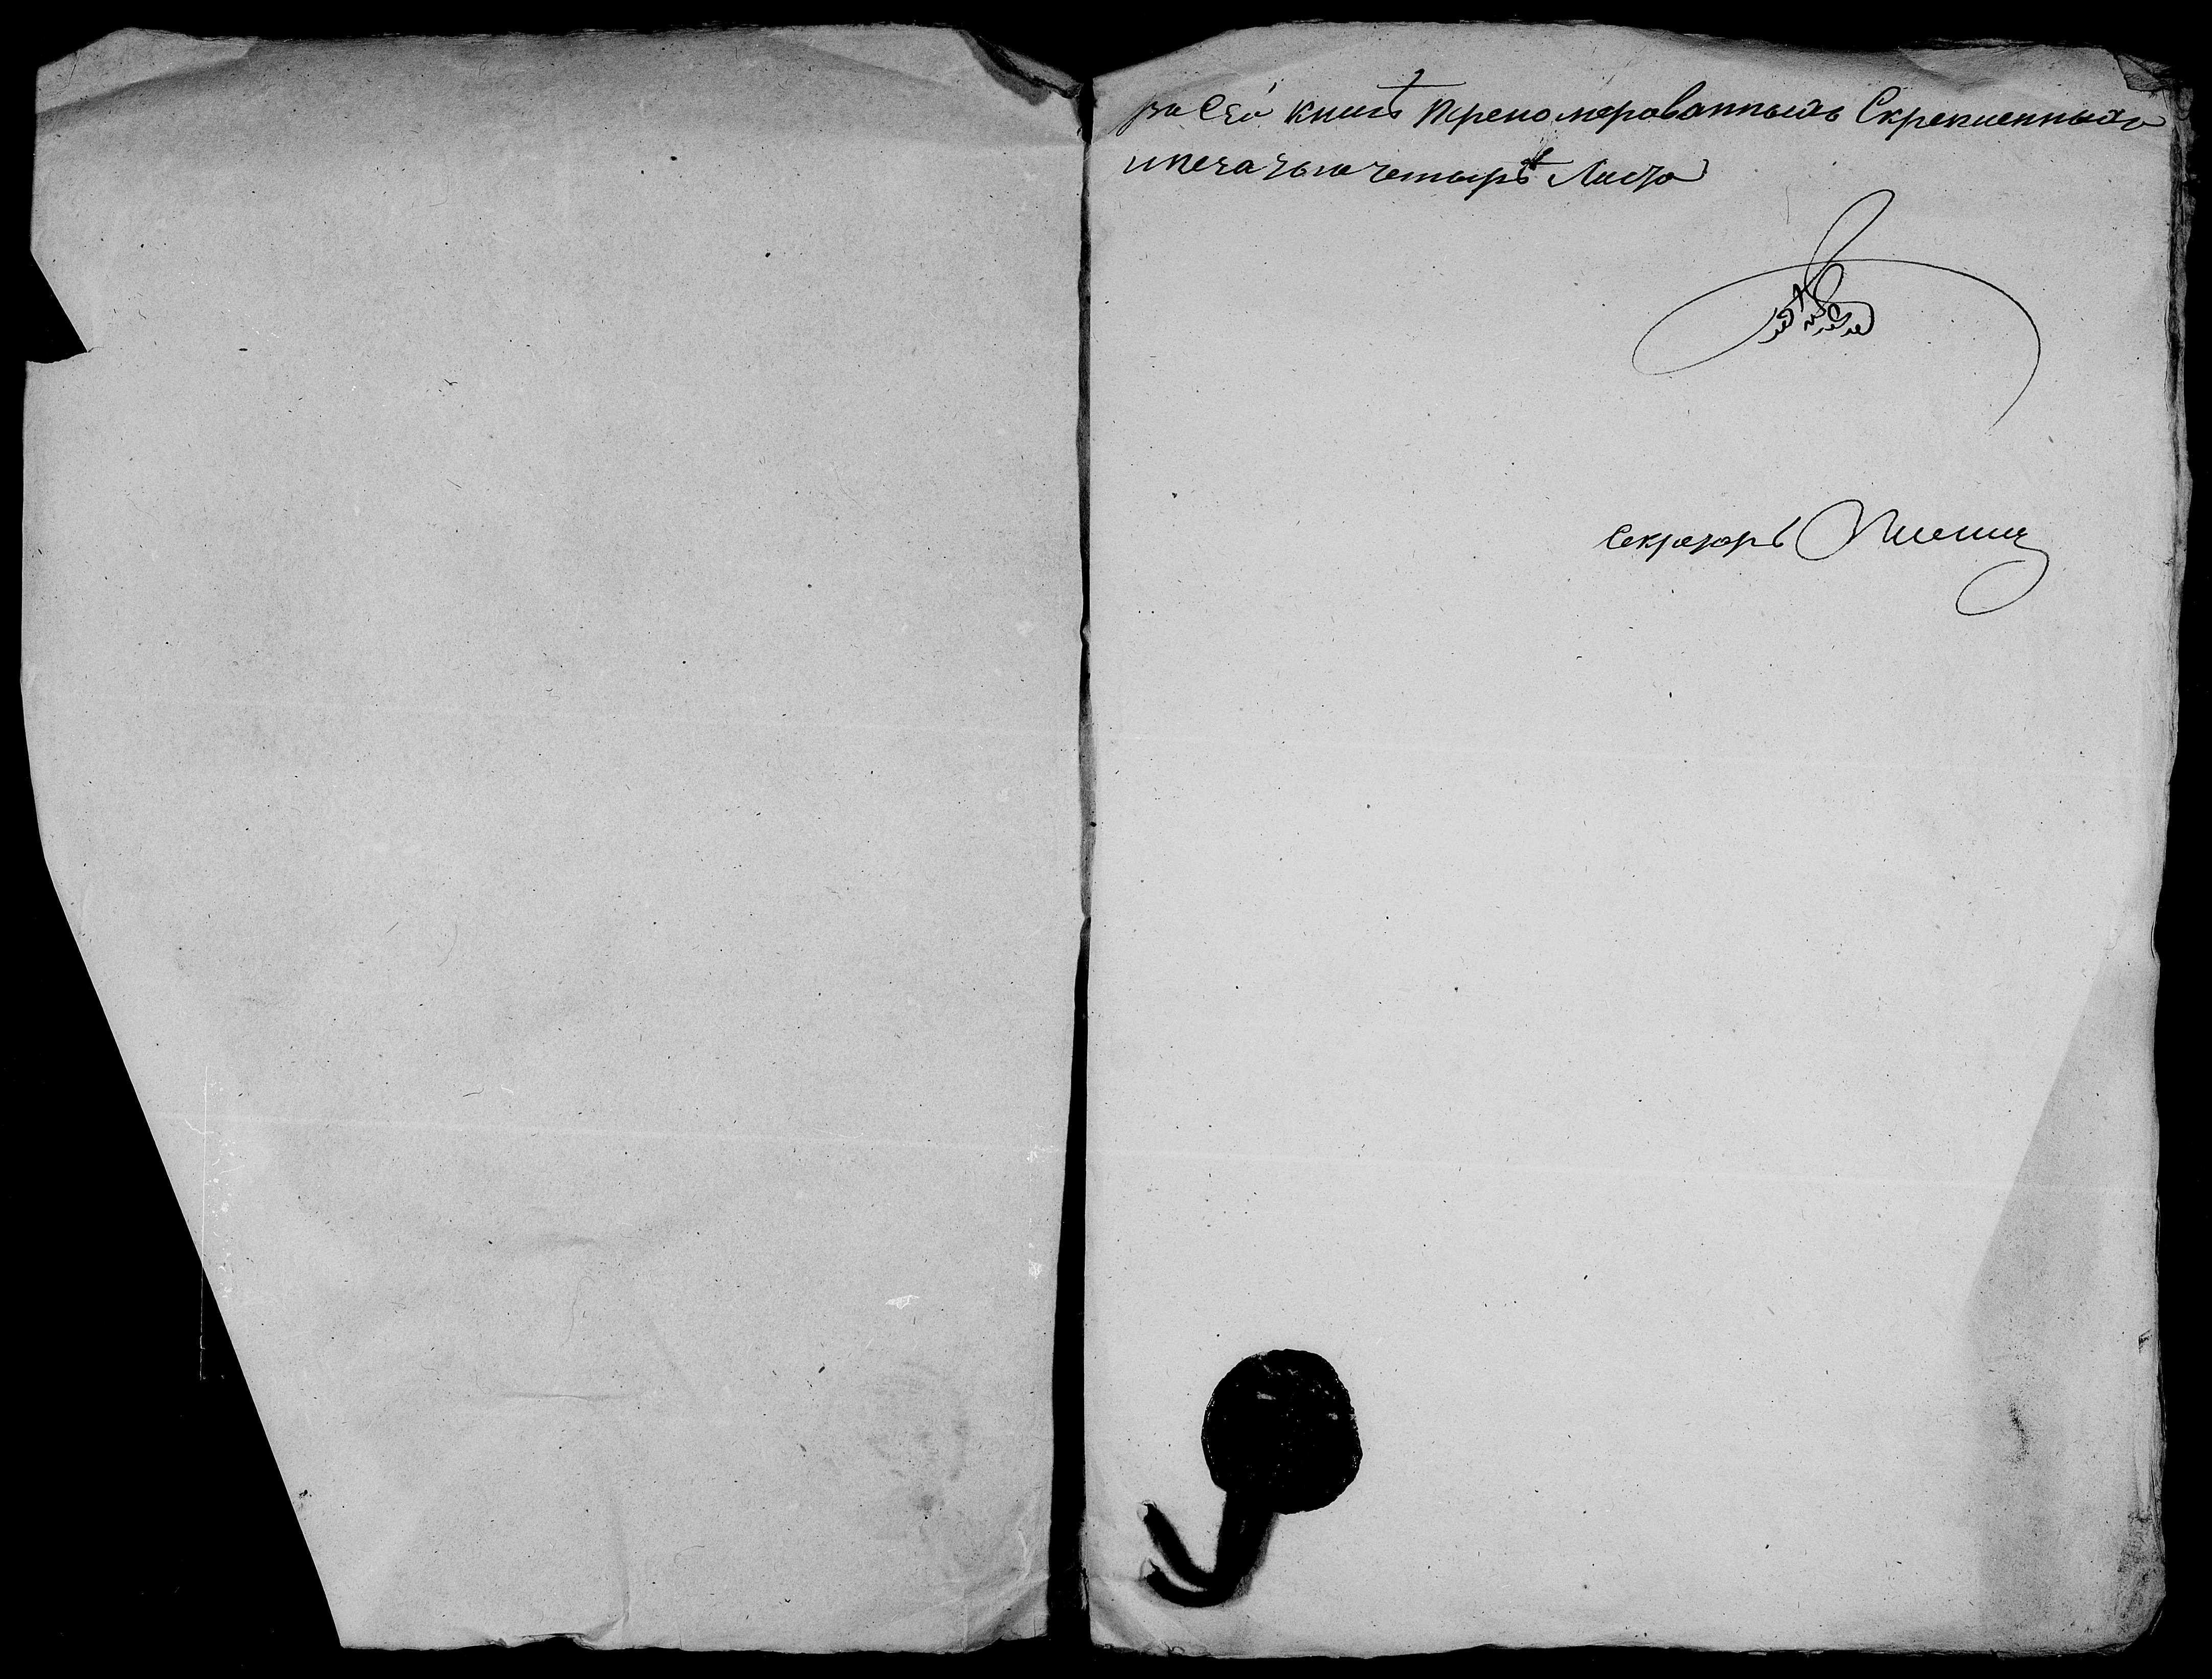 въ Сей книгѣ Преномерованныхъ Скрепленныхъ
и печатью четырѣ Листа
Секретарь